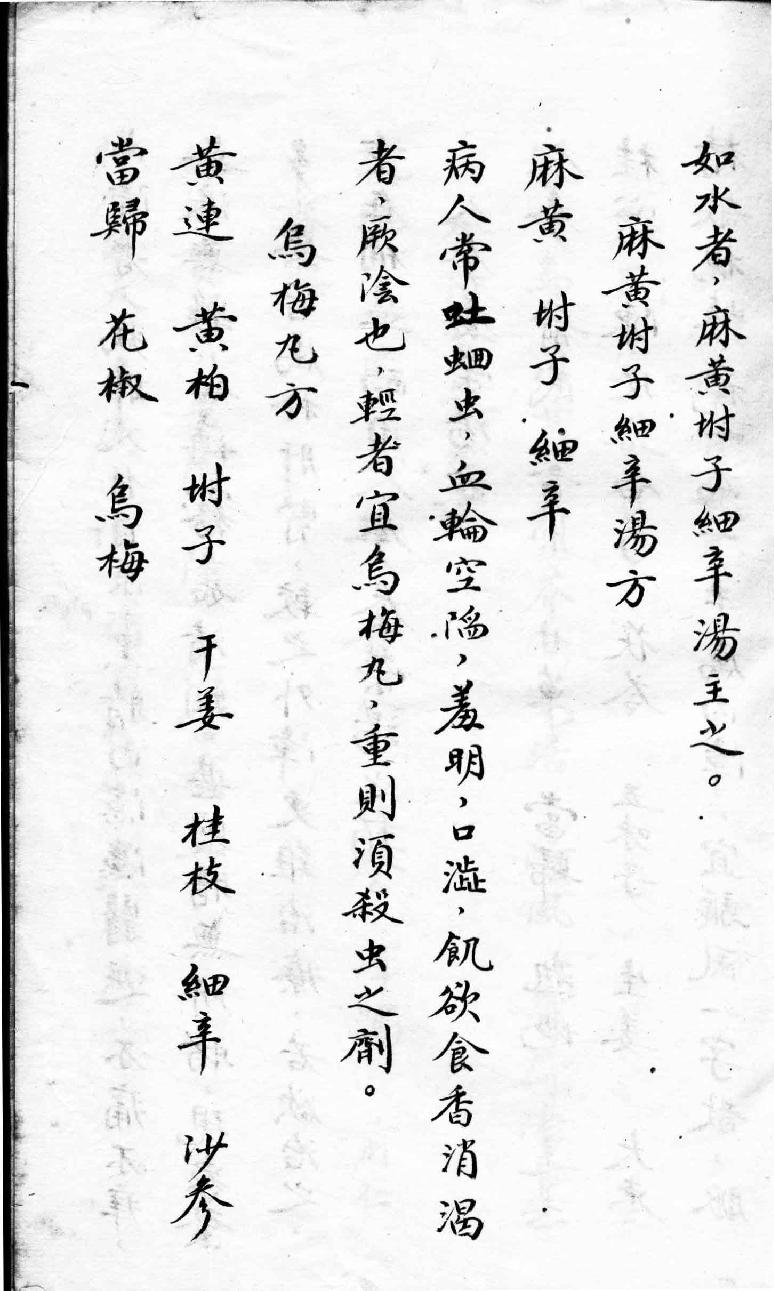 如水者，麻黄坿子細辛湯主之。
麻黄坿子細辛湯方
麻黄　坿子　細辛
病人常吐蛔虫，血輪空陷，羞明，口澁，飢欲食香消渴
者，厥陰也，輕者宜烏梅丸，重則須殺虫之劑。
烏梅丸方
黄連　黄柏　坿子　干姜　桂枝　細辛　沙参
當歸　花椒　烏梅